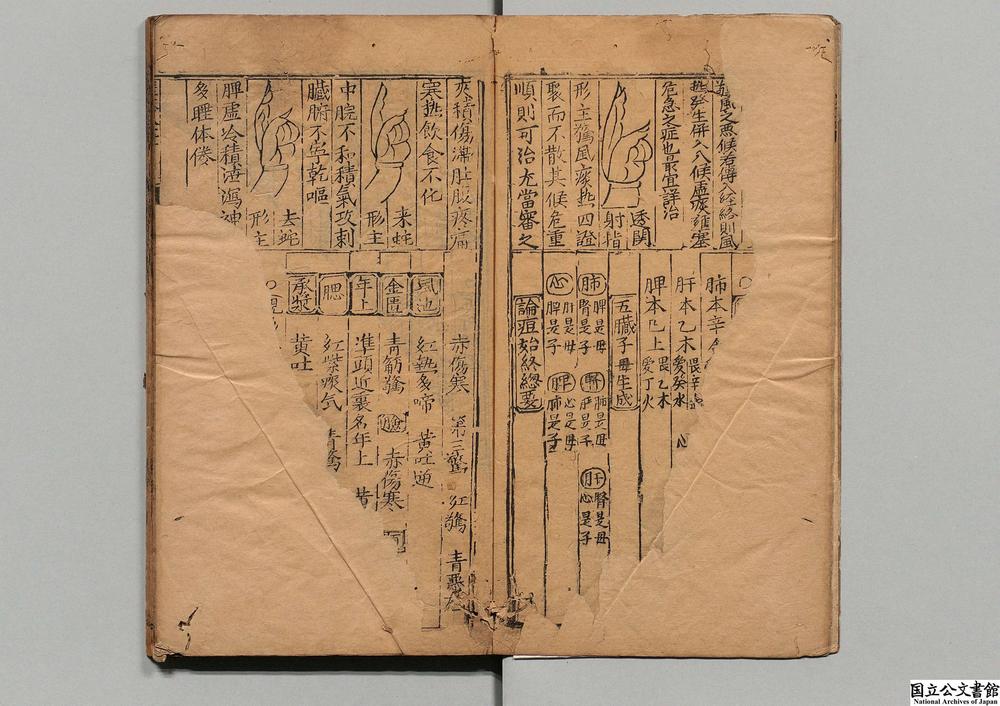 驚風之悪候若傳入経絡則風
熱發生併入八候盧痰雍塞
危急之症也最宜詳治
透関
射指
形主驚風痰熱四證
聚而不散其候危重
順則可治尤當審之
肺本辛
肝本乙木 畏辛 愛癸水
脾本巳上 畏乙木 愛丁火
五臓子母生成
肺 脾是母 腎是子
腎 肺是母 肝是子
肝 腎是母 心是子
心 肝是母 脾是子
脾 心是母 肺是子
論痘始終總要
夾積傷滯肚腹疼痛
寒熱飲食不化
来蛇
形主
中脘不和積氣攻刺
臓腑不寧乾嘔
去蛇
形主
脾虚冷積渣瀉神
多睡体倦
赤傷寒 第三驚 紅驚 青悪
風池 紅熱多啼 黄吐逆
金匱 青筋驚 臉 赤傷寒
年上 準頭近裏名年上 黄
腮 紅紫痰気 青驚
承漿 黄吐
国立公文書館
National Archives of Japan